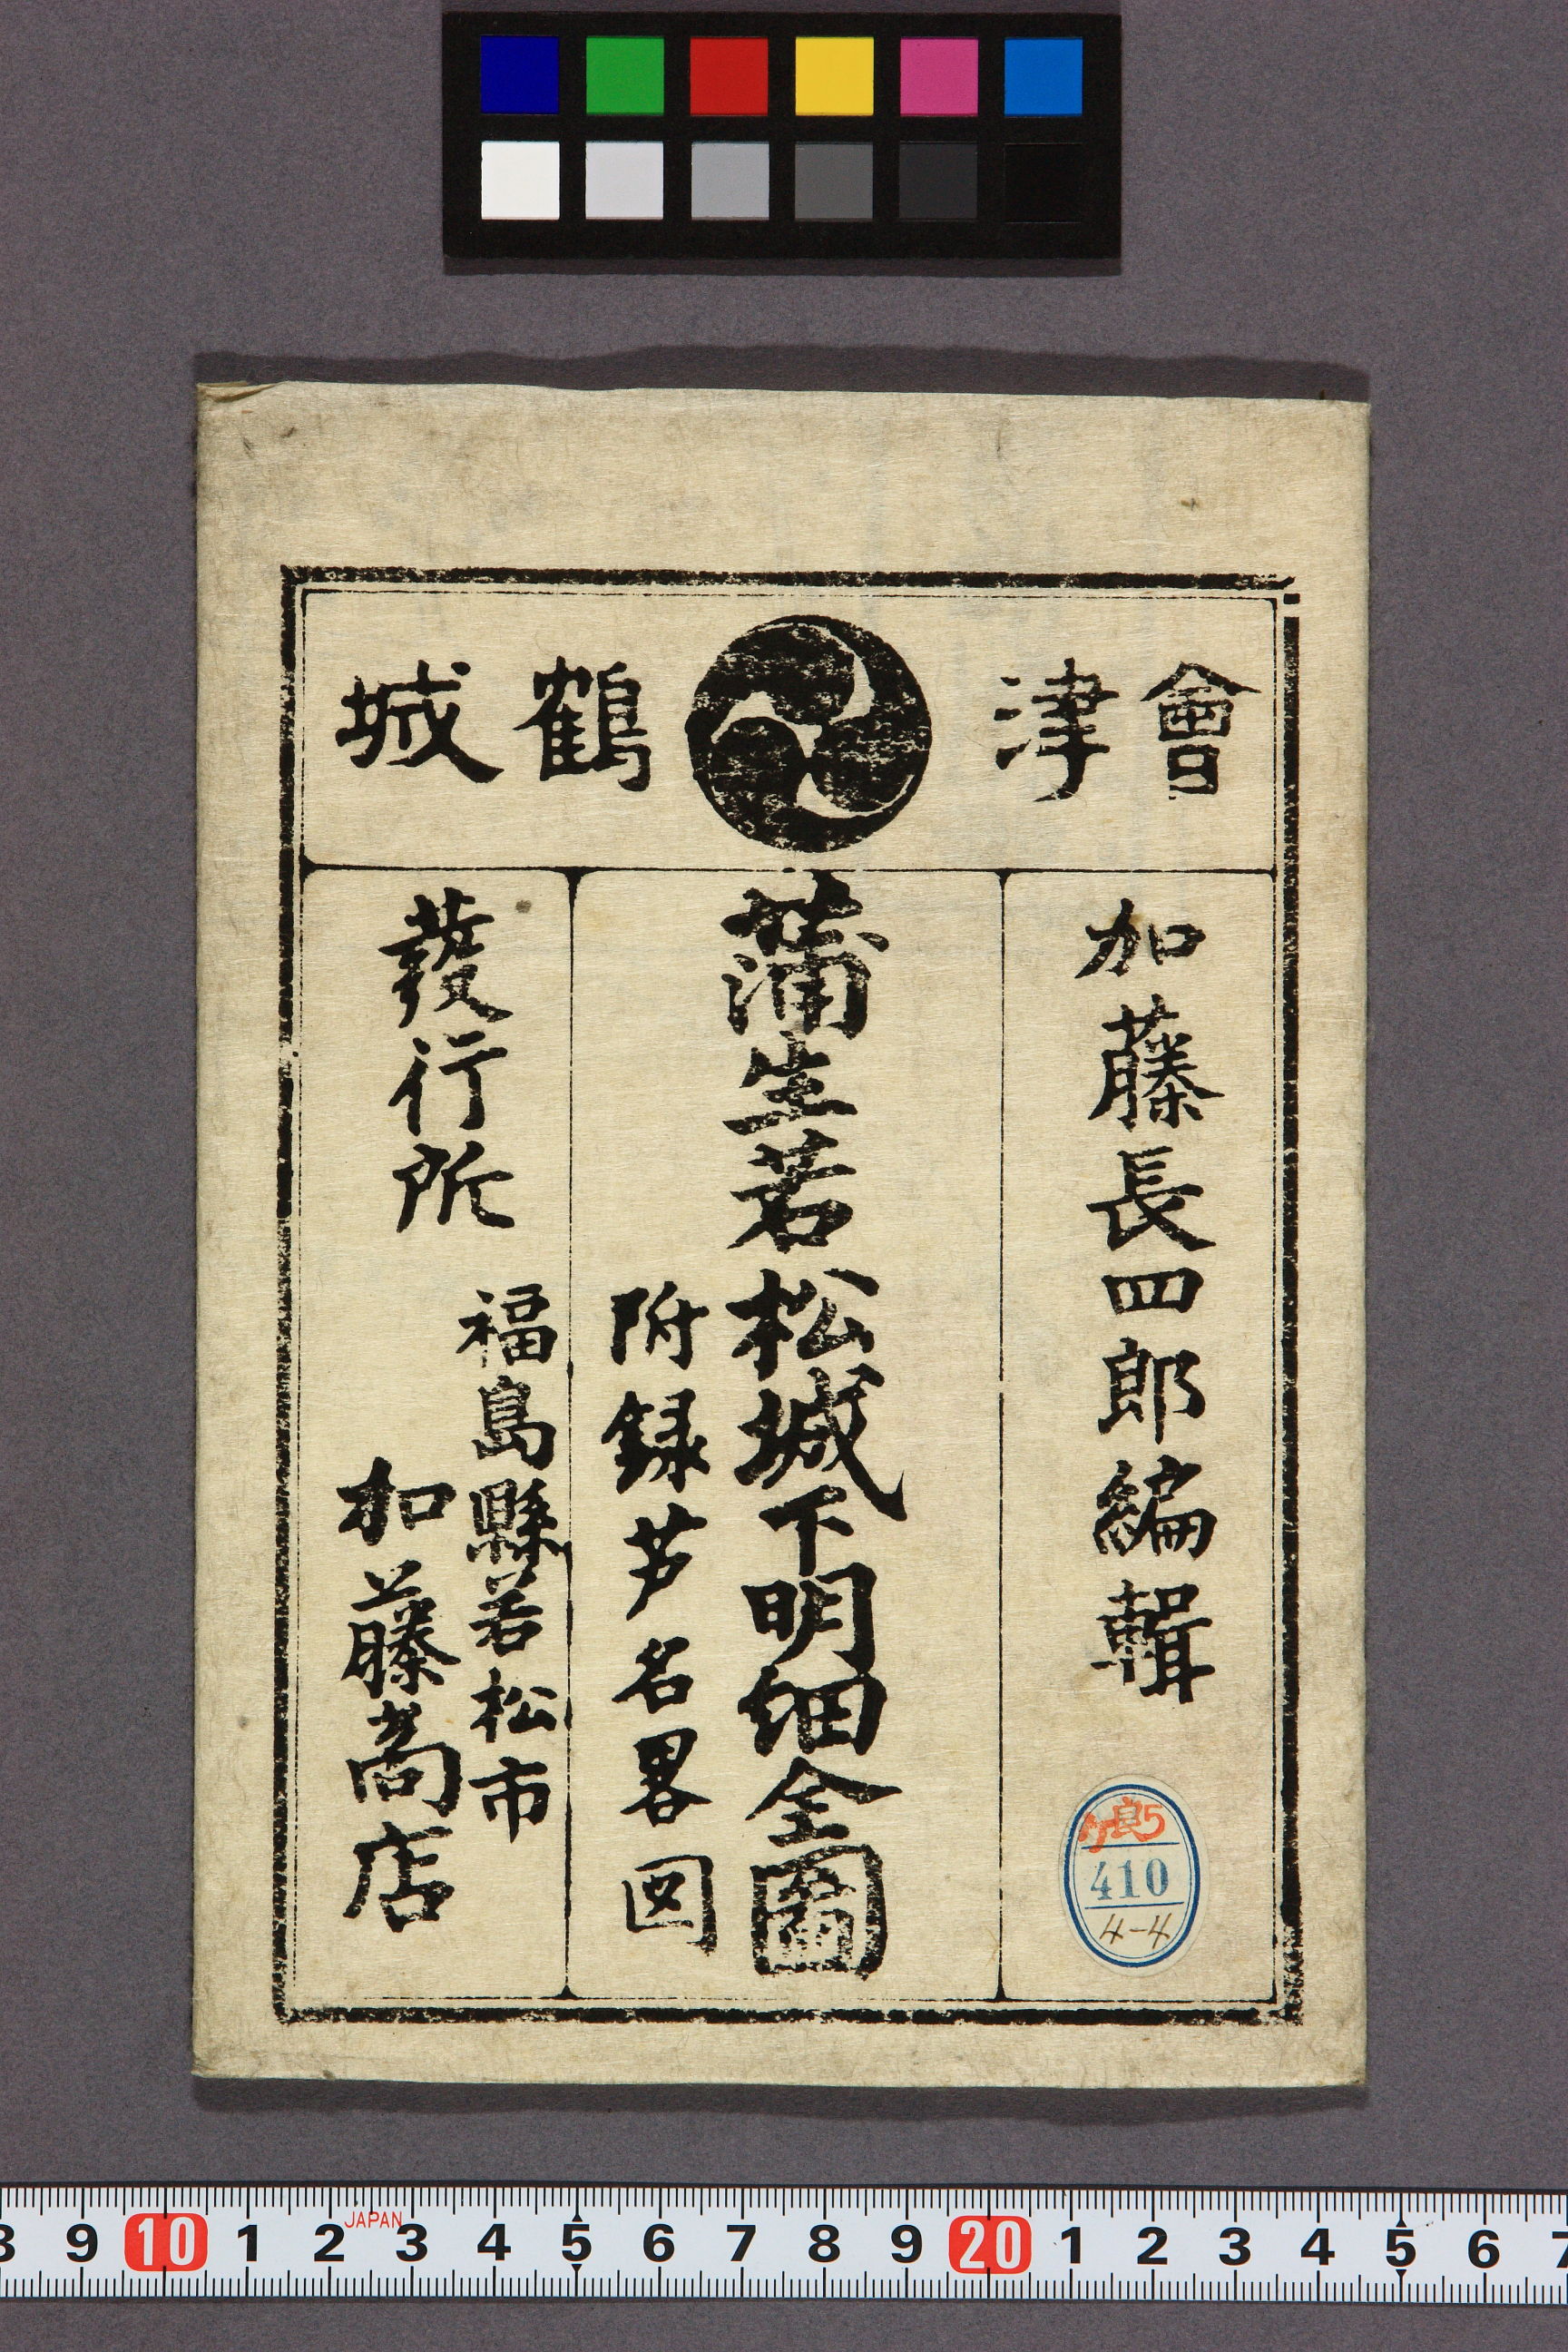 會津 鶴城
加藤長四郎編輯
蒲生若松城下明細全圖
附録芦名畧図
發行所
福島縣若松市
加藤商店
410
4-4
8 9 10 1 2 3 4 5 6 7 8 9 20 1 2 3 4 5 6 7
JAPAN